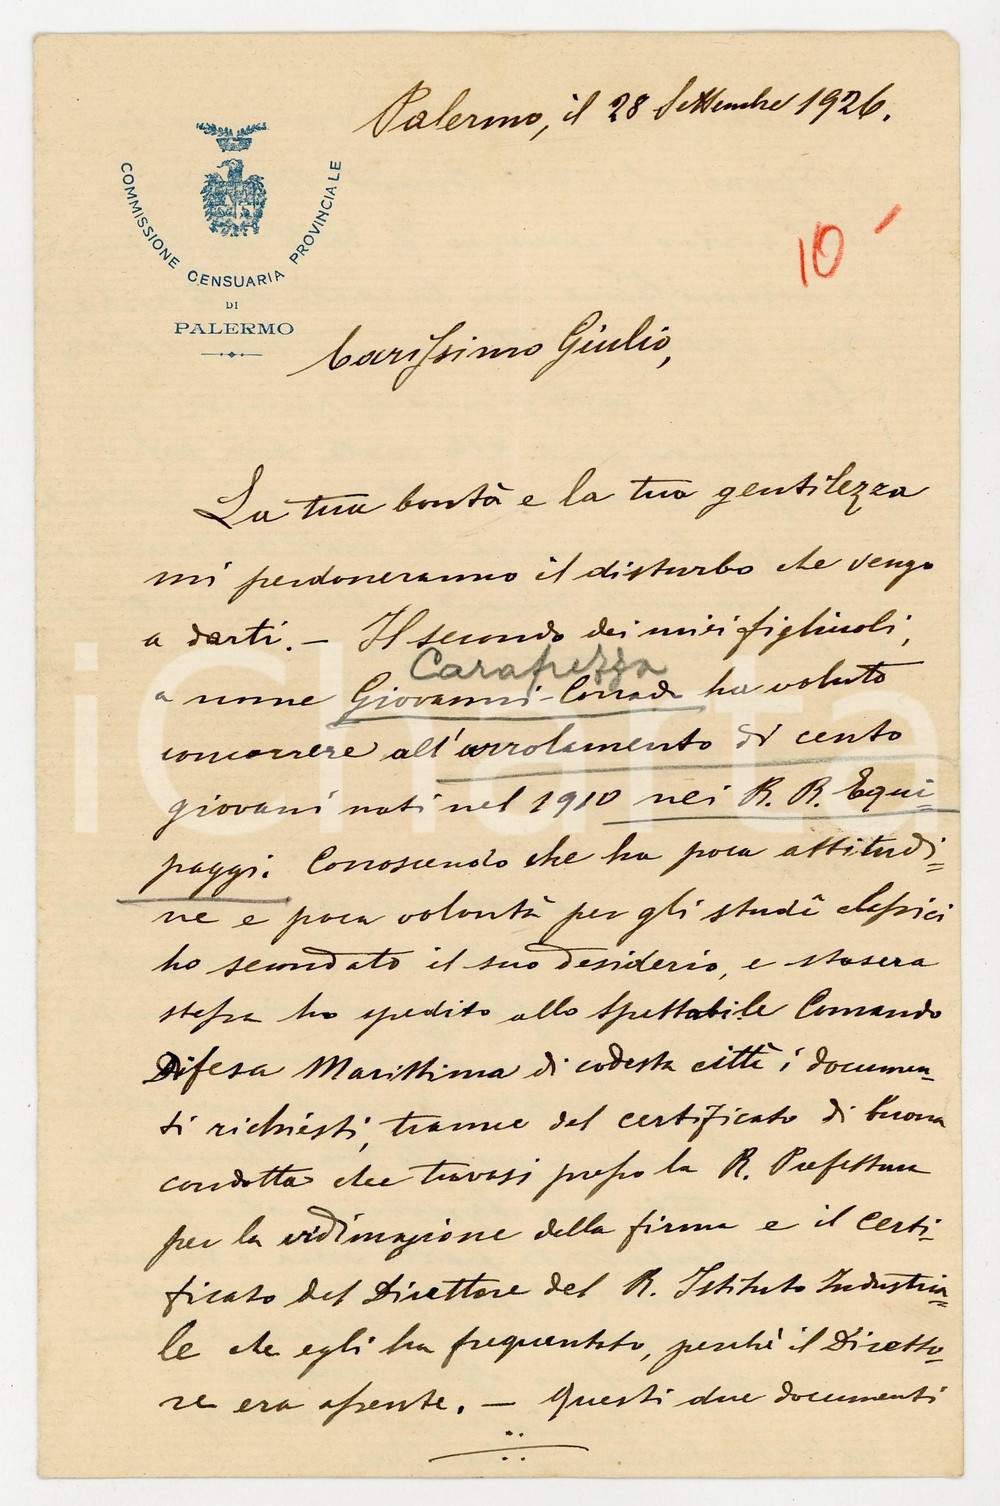 Palermo, il 28 Settembre 1926.
COMMISSIONE CENSUARIA PROVINCIALE
DI
PALERMO
10
Carissimo Giulio,
La tua bontà e la tua gentilezza
mi perdoneranno il disturbo che vengo
a darti. — Il secondo dei miei figliuoli,
Carapezza
a nome Giovanni-Corrado ha voluto
concorrere all'arrolamento di cento
giovani nati nel 1910 nei R. R. Equi=
paggi. Conoscendo che ha poca attitudi=
ne e poca volontà per gli studî classici
ho secondato il suo desiderio, e stasera
stessa ho spedito allo Spettabile Comando
Difesa Marittima di codesta città i documen=
ti richiesti, tranne del certificato di buona
condotta che trovasi presso la R. Prefettura
per la vidimazione della firma e il certi=
ficato del Direttore del R. Istituto Industria=
le che egli ha frequentato, perchè il Diretto=
re era assente. — Questi due documenti
iCharta